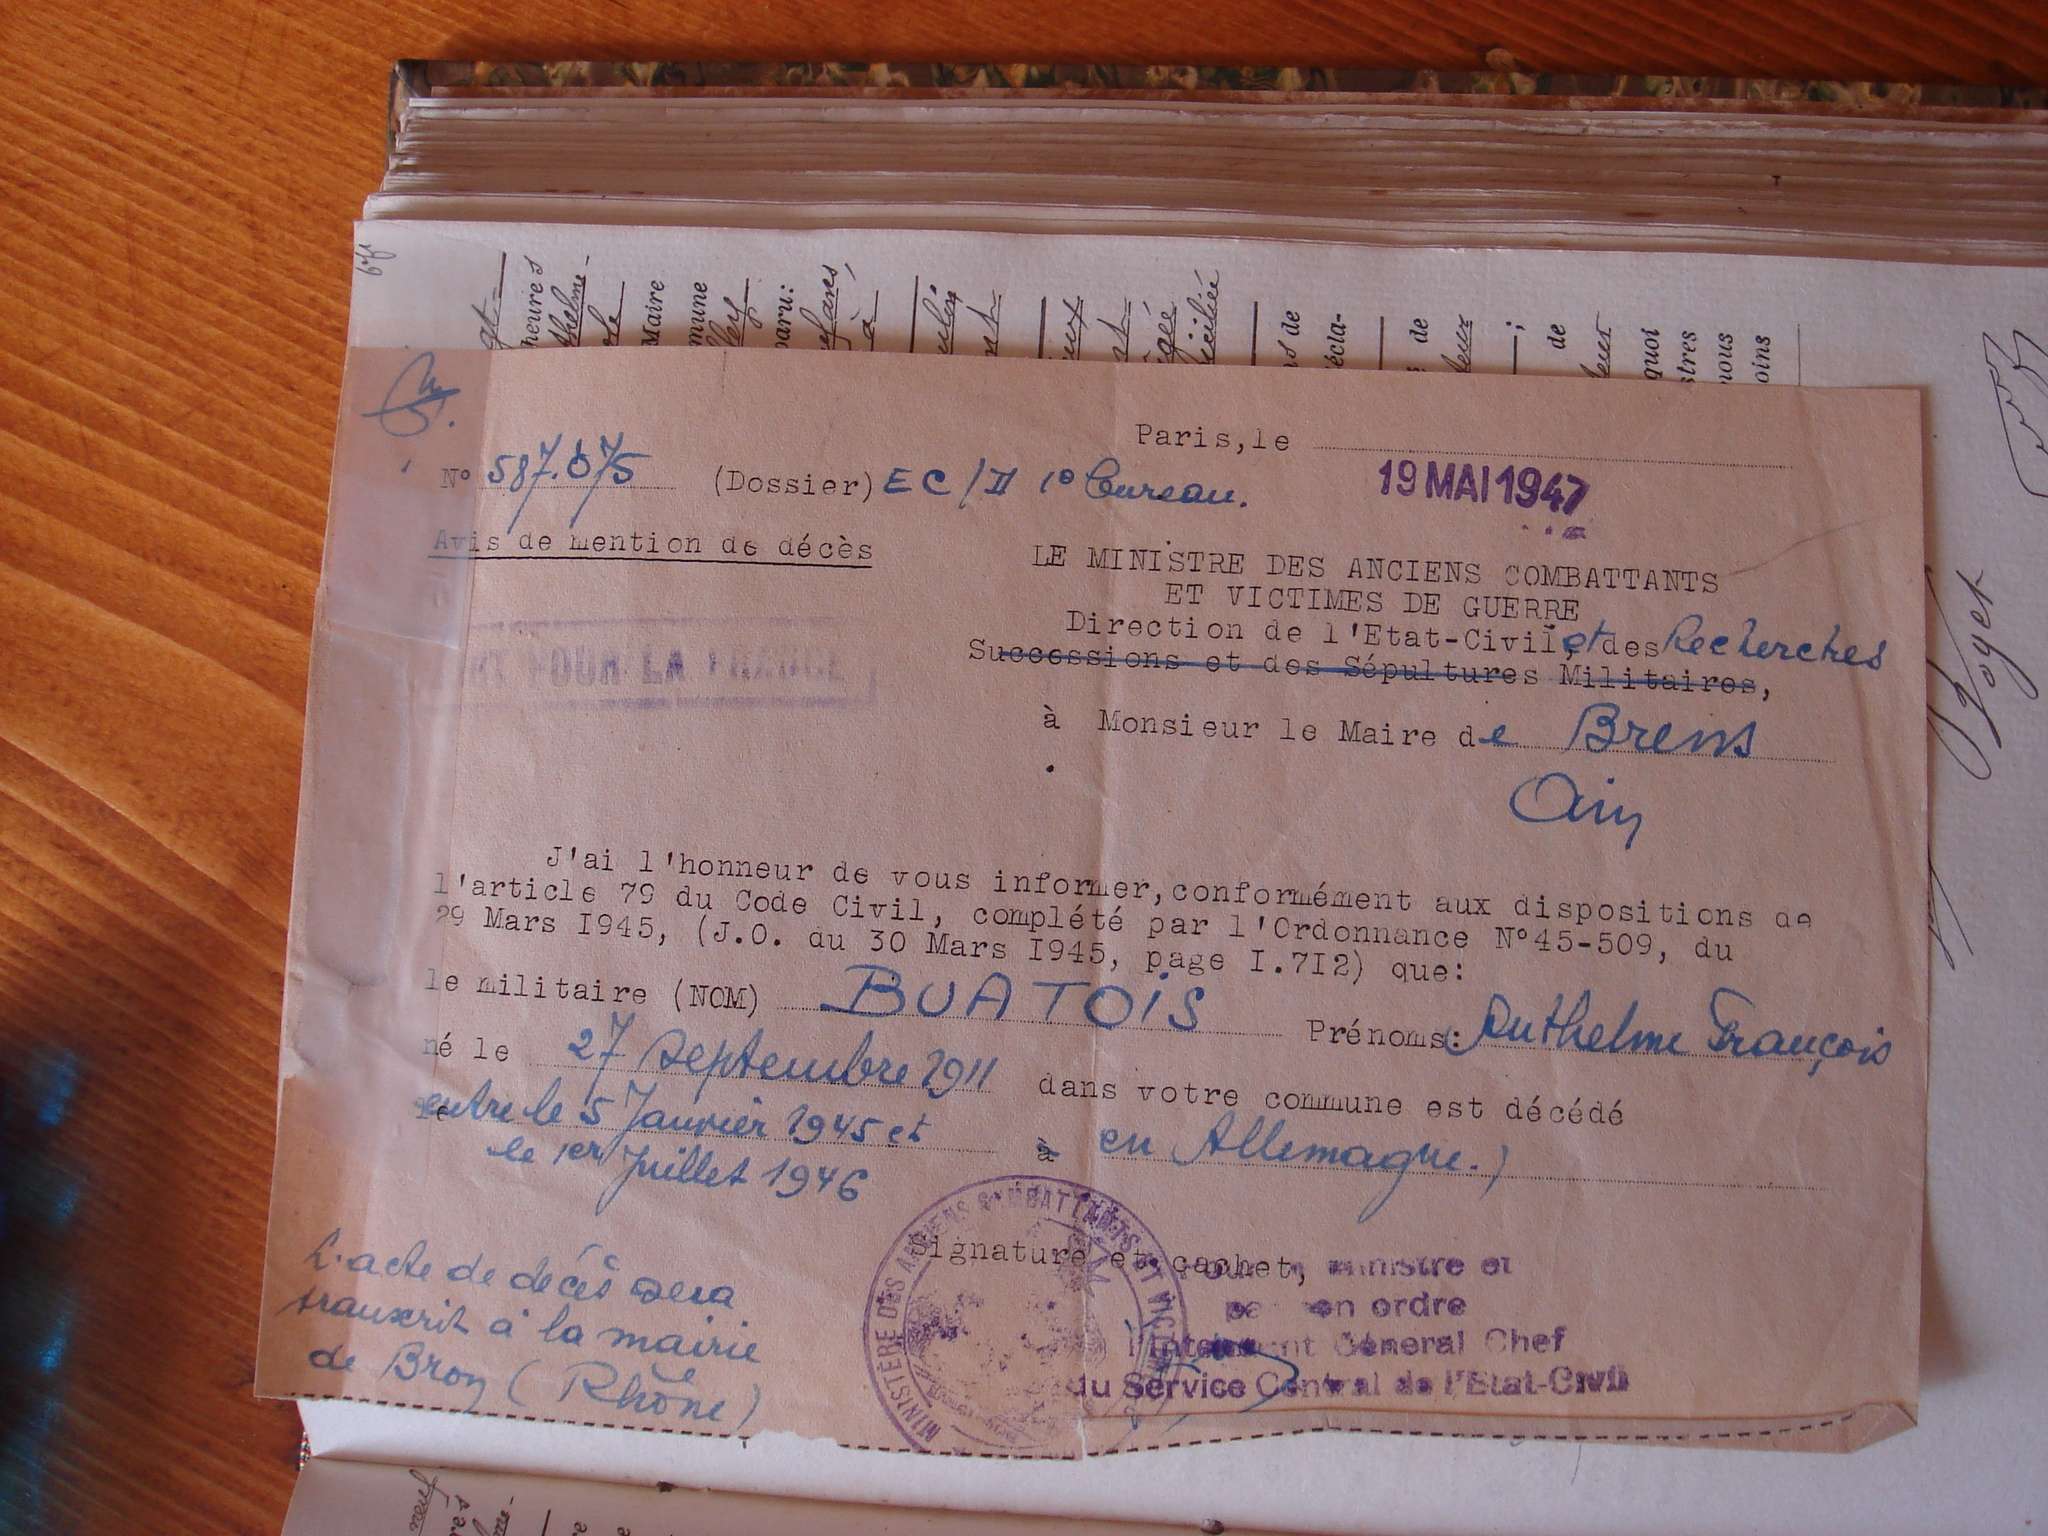 heures
Maire
mmune
paru:
ns de
écla-
de
de
quoi
stres
nous
oins
Paris, le
19 MAI 1947
N° 587.075 (Dossier) EC/II 1° Bureau.
Avis de mention de décès
LE MINISTRE DES ANCIENS COMBATTANTS
ET VICTIMES DE GUERRE
Direction de l'Etat-Civil, et des Recherches
Successions et des Sépultures Militaires,
RT POUR LA FRANCE
à Monsieur le Maire de Brens
Ain
J'ai l'honneur de vous informer, conformément aux dispositions de
l'article 79 du Code Civil, complété par l'Ordonnance N°45-509, du
29 Mars I945, (J.O. du 30 Mars I945, page I.7I2) que:
le militaire (NOM) BUATOIS Prénoms: Anthelme François
né le 27 septembre 1911 dans votre commune est décédé
entre le 5 Janvier 1945 et à en Allemagne.)
le 1er Juillet 1946
Signature et cachet,
MINISTÈRE DES ANCIENS COMBATTANTS ET VICT
Pour le ministre et
par son ordre
l'Intendant Général Chef
du Service Central de l'Etat-Civil
L'acte de décès sera
transcrit à la mairie
de Bron (Rhône)
Poyet